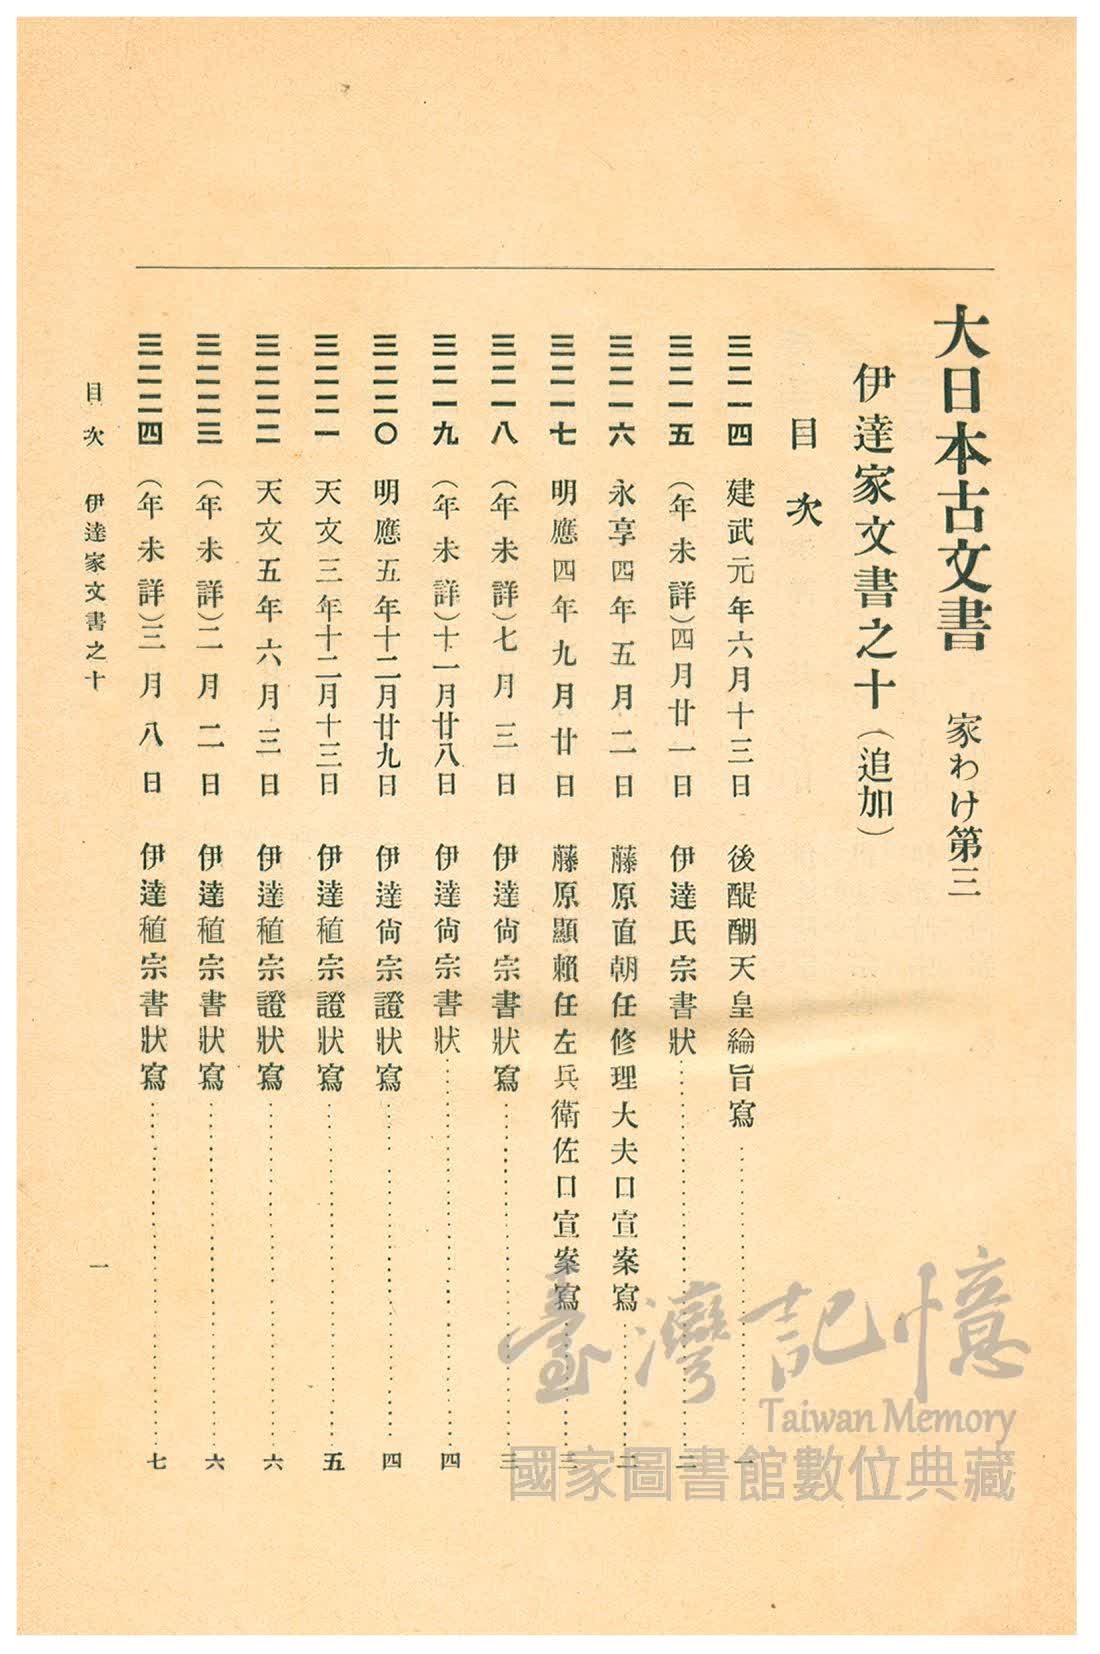 大日本古文書 家わけ第三
伊達家文書之十（追加）
目次
三二一四 建武元年六月十三日 後醍醐天皇綸旨寫 一
三二一五 （年未詳）四月廿一日 伊達氏宗書狀 二
三二一六 永享四年五月二日 藤原直朝任修理大夫口宣案寫 二
三二一七 明應四年九月廿日 藤原顯賴任左兵衛佐口宣案寫 三
三二一八 （年未詳）七月三日 伊達尙宗書狀寫 三
三二一九 （年未詳）十一月廿八日 伊達尙宗書狀 四
三二二〇 明應五年十二月廿九日 伊達尙宗證狀寫 四
三二二一 天文三年十二月十三日 伊達稙宗證狀寫 五
三二二二 天文五年六月三日 伊達稙宗證狀寫 六
三二二三 （年未詳）二月二日 伊達稙宗書狀寫 六
三二二四 （年未詳）三月八日 伊達稙宗書狀寫 七
目次 伊達家文書之十 一
臺灣記憶
Taiwan Memory
國家圖書館數位典藏